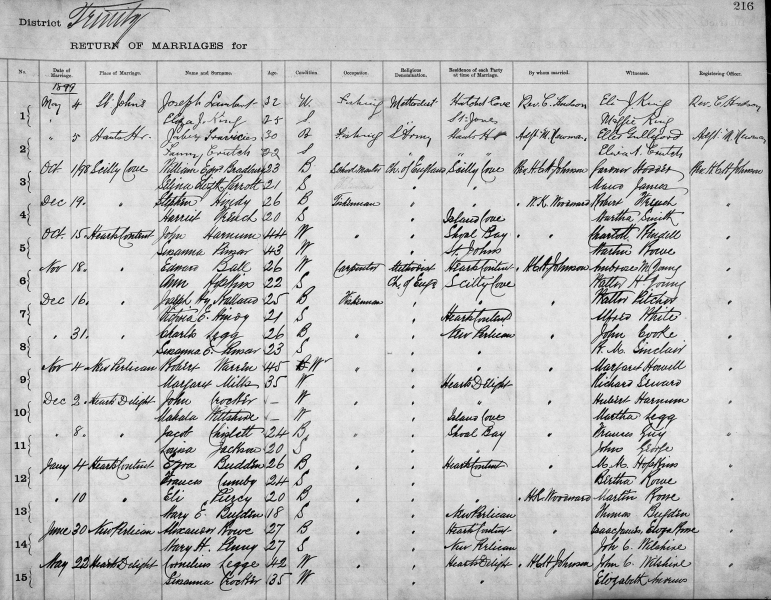 216
District Trinity
RETURN OF MARRIAGES for
No. Date of Marriage. Place of Marriage. Name and Surname. Age. Condition. Occupation. Religious Denomination. Residence of each Party at time of Marriage. By whom married. Witnesses. Registering Officer.
1899
1 May 4 St. John's Joseph Lambert 32 W. Fishing Methodist Hatchet Cove Rev. C. Eli J. King Rev. C.
" Eliza J. King 25 S St. Jones King
2 " 5 Hants Hr. 20 B Fishing S. Army Hants Hr. Adjt. M. Newman Adjt. M. Newman
Fanny 22 S "
3 Oct 1/98 Scilly Cove William 23 B School Master Ch. of England Scilly Cove Rev. H.C.H. Johnson Rev. H.C.H. Johnson
Parrott 21 S " " James
4 Dec 19 " Stephen Hindy 26 B Fisherman " " W.K. Woodward Robert French "
Harriet French 20 S " Island Cove Martha Smith
5 Oct 15 Hearts Content John Harnum 44 W " " Shoal Bay " Charlott "
Susanna 43 W " St. Johns Martin Rowe
6 Nov 18 " Edward Ball 26 W Carpenter Methodist Hearts Content H.C.H. Johnson Ambrose M. Young "
Ann Hopkins 22 S Ch. of Eng'd Scilly Cove Walter H. Young
7 Dec 16 " Joseph Hy. 25 B Fisherman " " " Walter Pitcher "
E. 21 S " Hearts Content Alfred White
8 " 31 " Charles Legg 26 B " " New Perlican " John Cooke "
Susanna E. 23 S " " K. M. Sinclair
9 Nov 4 New Perlican Robert Warren 45 W " " " " Margaret Howell "
Margaret Mills 35 W " Hearts Delight Richard Seward
10 Dec 2 Hearts Delight John Crocker — W " " " " Hubert Harnum "
Mahala Wiltshire — W " Island Cove Martha Legg
11 " 8 " Jacob Chislett 24 B " " Shoal Bay " Francis Guy "
Jackson 20 S " " John George
12 Jany 4 Hearts Content Ezra Budden 26 B " " Hearts Content " M. M. Hopkins "
Frances Cumby 24 S " " Bertha Rowe
13 " 10 " Eli Piercy 20 B " " " H.K. Woodward Martin Rowe "
Mary E. Budden 18 S " New Perlican Budden
14 June 30 New Perlican Alexander Rowe 27 B " " Hearts Content " Eliza Rowe "
Mary H. Penny 27 S " New Perlican John C. Wilshire
15 May 22 Hearts Delight Cornelius Legge 42 W " " Hearts Delight H.C.H. Johnson John C. Wilshire "
Susanna Crocker 35 W " " Elizabeth Andrews